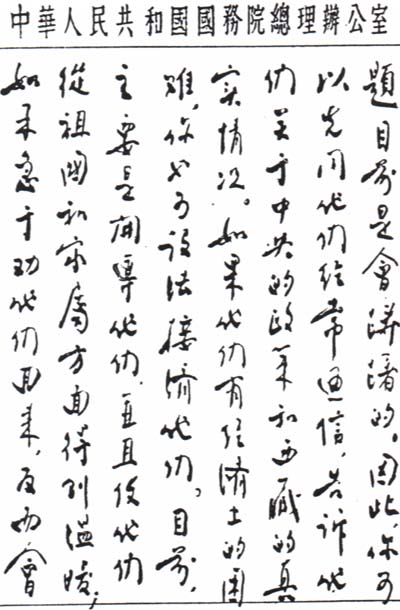 中華人民共和國國務院總理辦公室
題目前是會躊躇的。因此,你可
以先同他们经常通信,告訴他
们关于中共的政策和西藏的真
实情况。如果他们有经濟上的困
难,你也可設法接濟他们。目前,
主要是開導他们,並且使他们
從祖國和家屬方面得到温暖;
如果急于劝他们回来,反而會